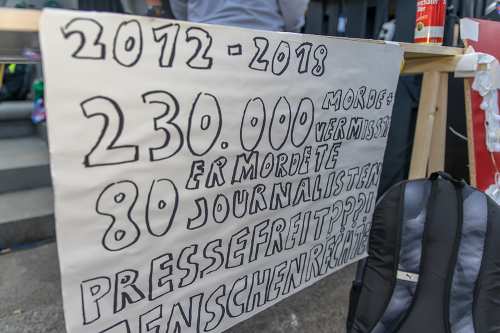 2012-2018
230.000 MORDE+
VERMISSTE
ERMORDETE
80 JOURNALISTEN
PRESSEFREIT???!
MENSCHENRECHTE